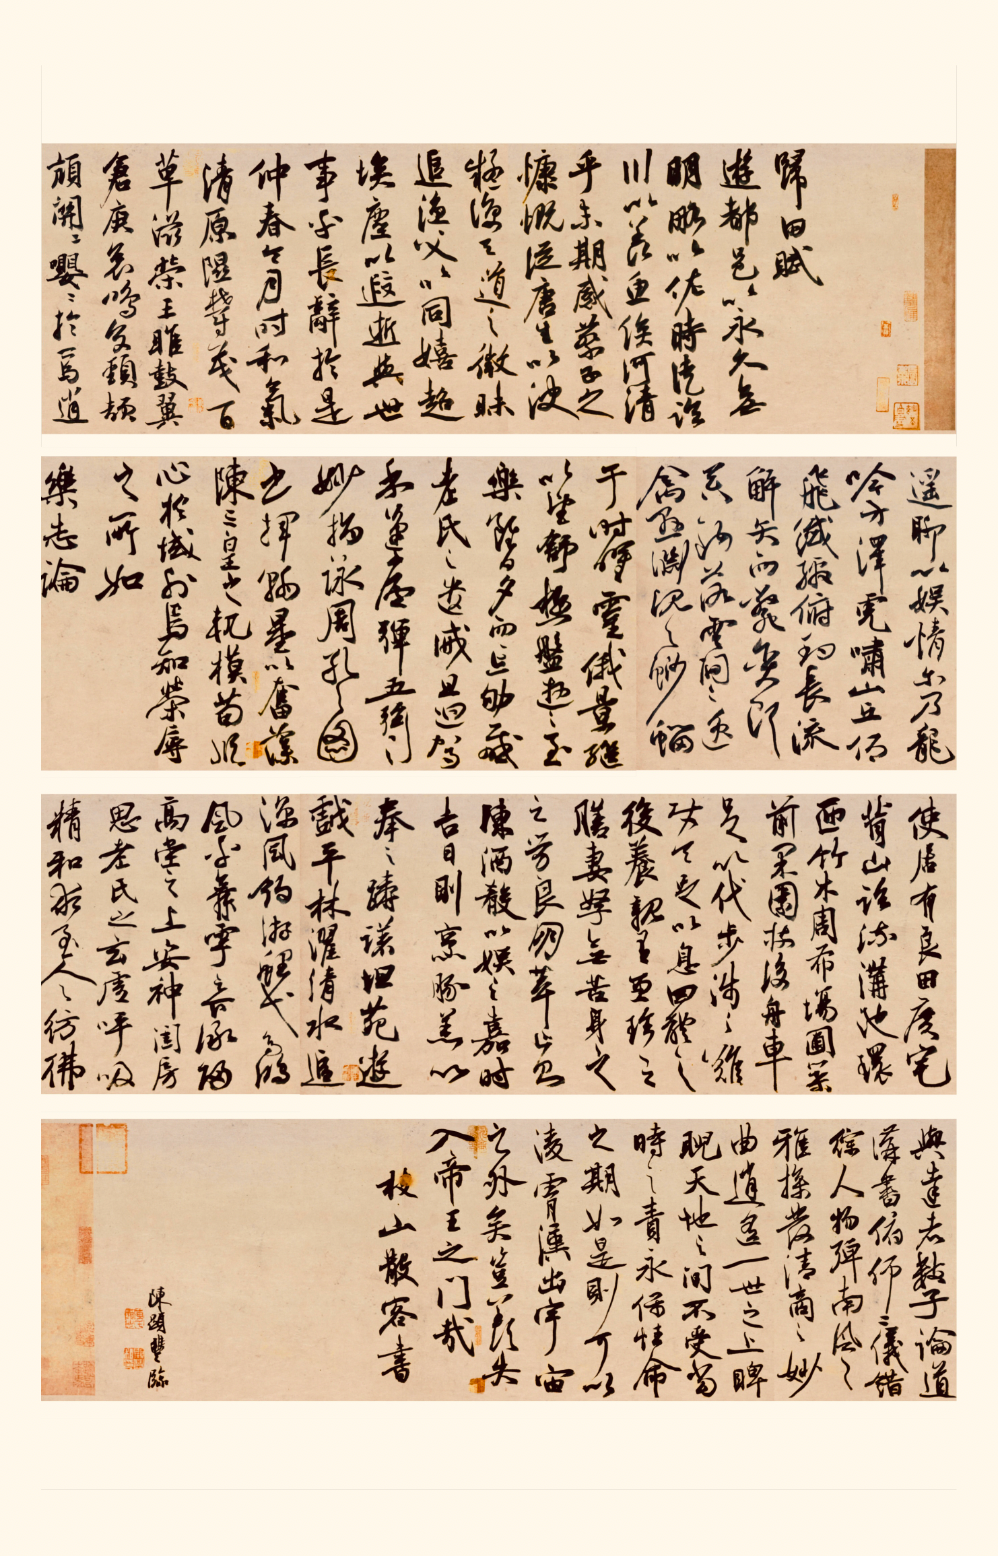 歸田賦
遊都邑以永久無
明略以佐時徒臨
川以羨魚俟河清
乎未期感蔡子之
慷慨從唐生以決
疑諒天道之微昧
追漁父以同嬉超
埃塵以遐逝與世
事乎長辭於是
仲春令月時和氣
清原隰鬱茂百
草滋榮王雎鼓翼
倉庚哀鳴交頸頡
頏關〻嚶〻於焉逍
遙聊以娛情爾乃龍
吟方澤虎嘯山丘仰
飛纖繳俯釣長流
觸矢而斃貪餌
吞鈎落雲間之逸
禽懸淵沉之魦鰡
于時曜靈俄景繼
以望舒極盤遊之至
樂雖日夕而忘劬感
老氏之遺誡且迴駕
乎蓬廬彈五弦之
妙指詠周孔之圖
書揮翰墨以奮藻
陳三皇之軌模苟縱
心於域外焉知榮辱
之所如
樂志論
使居有良田廣宅
背山臨流溝池環
匝竹木周布場圃築
前果園樹後舟車
足以代步涉之難
使令足以息四體之
役養親有兼珍之
膳妻孥無苦身之
之勞良朋萃止則
陳酒餚以娛之嘉時
吉日則烹豚羔以
奉之躊躇畦苑遊
戲平林濯清水追
涼風釣游鯉弋高鴻
風乎舞雩下詠歸
高堂之上安神閨房
思老氏之玄虛呼吸
精和求至人之彷彿
與達者數子論道
講書俯仰二儀錯
綜人物彈南風之
雅操發清商之妙
曲逍遙一世之上睥
睨天地之間不受當
時之責永保性命
之期如是則可以
淩霄漢出宇宙
之外矣豈羨夫
入帝王之門哉
枝山散客書